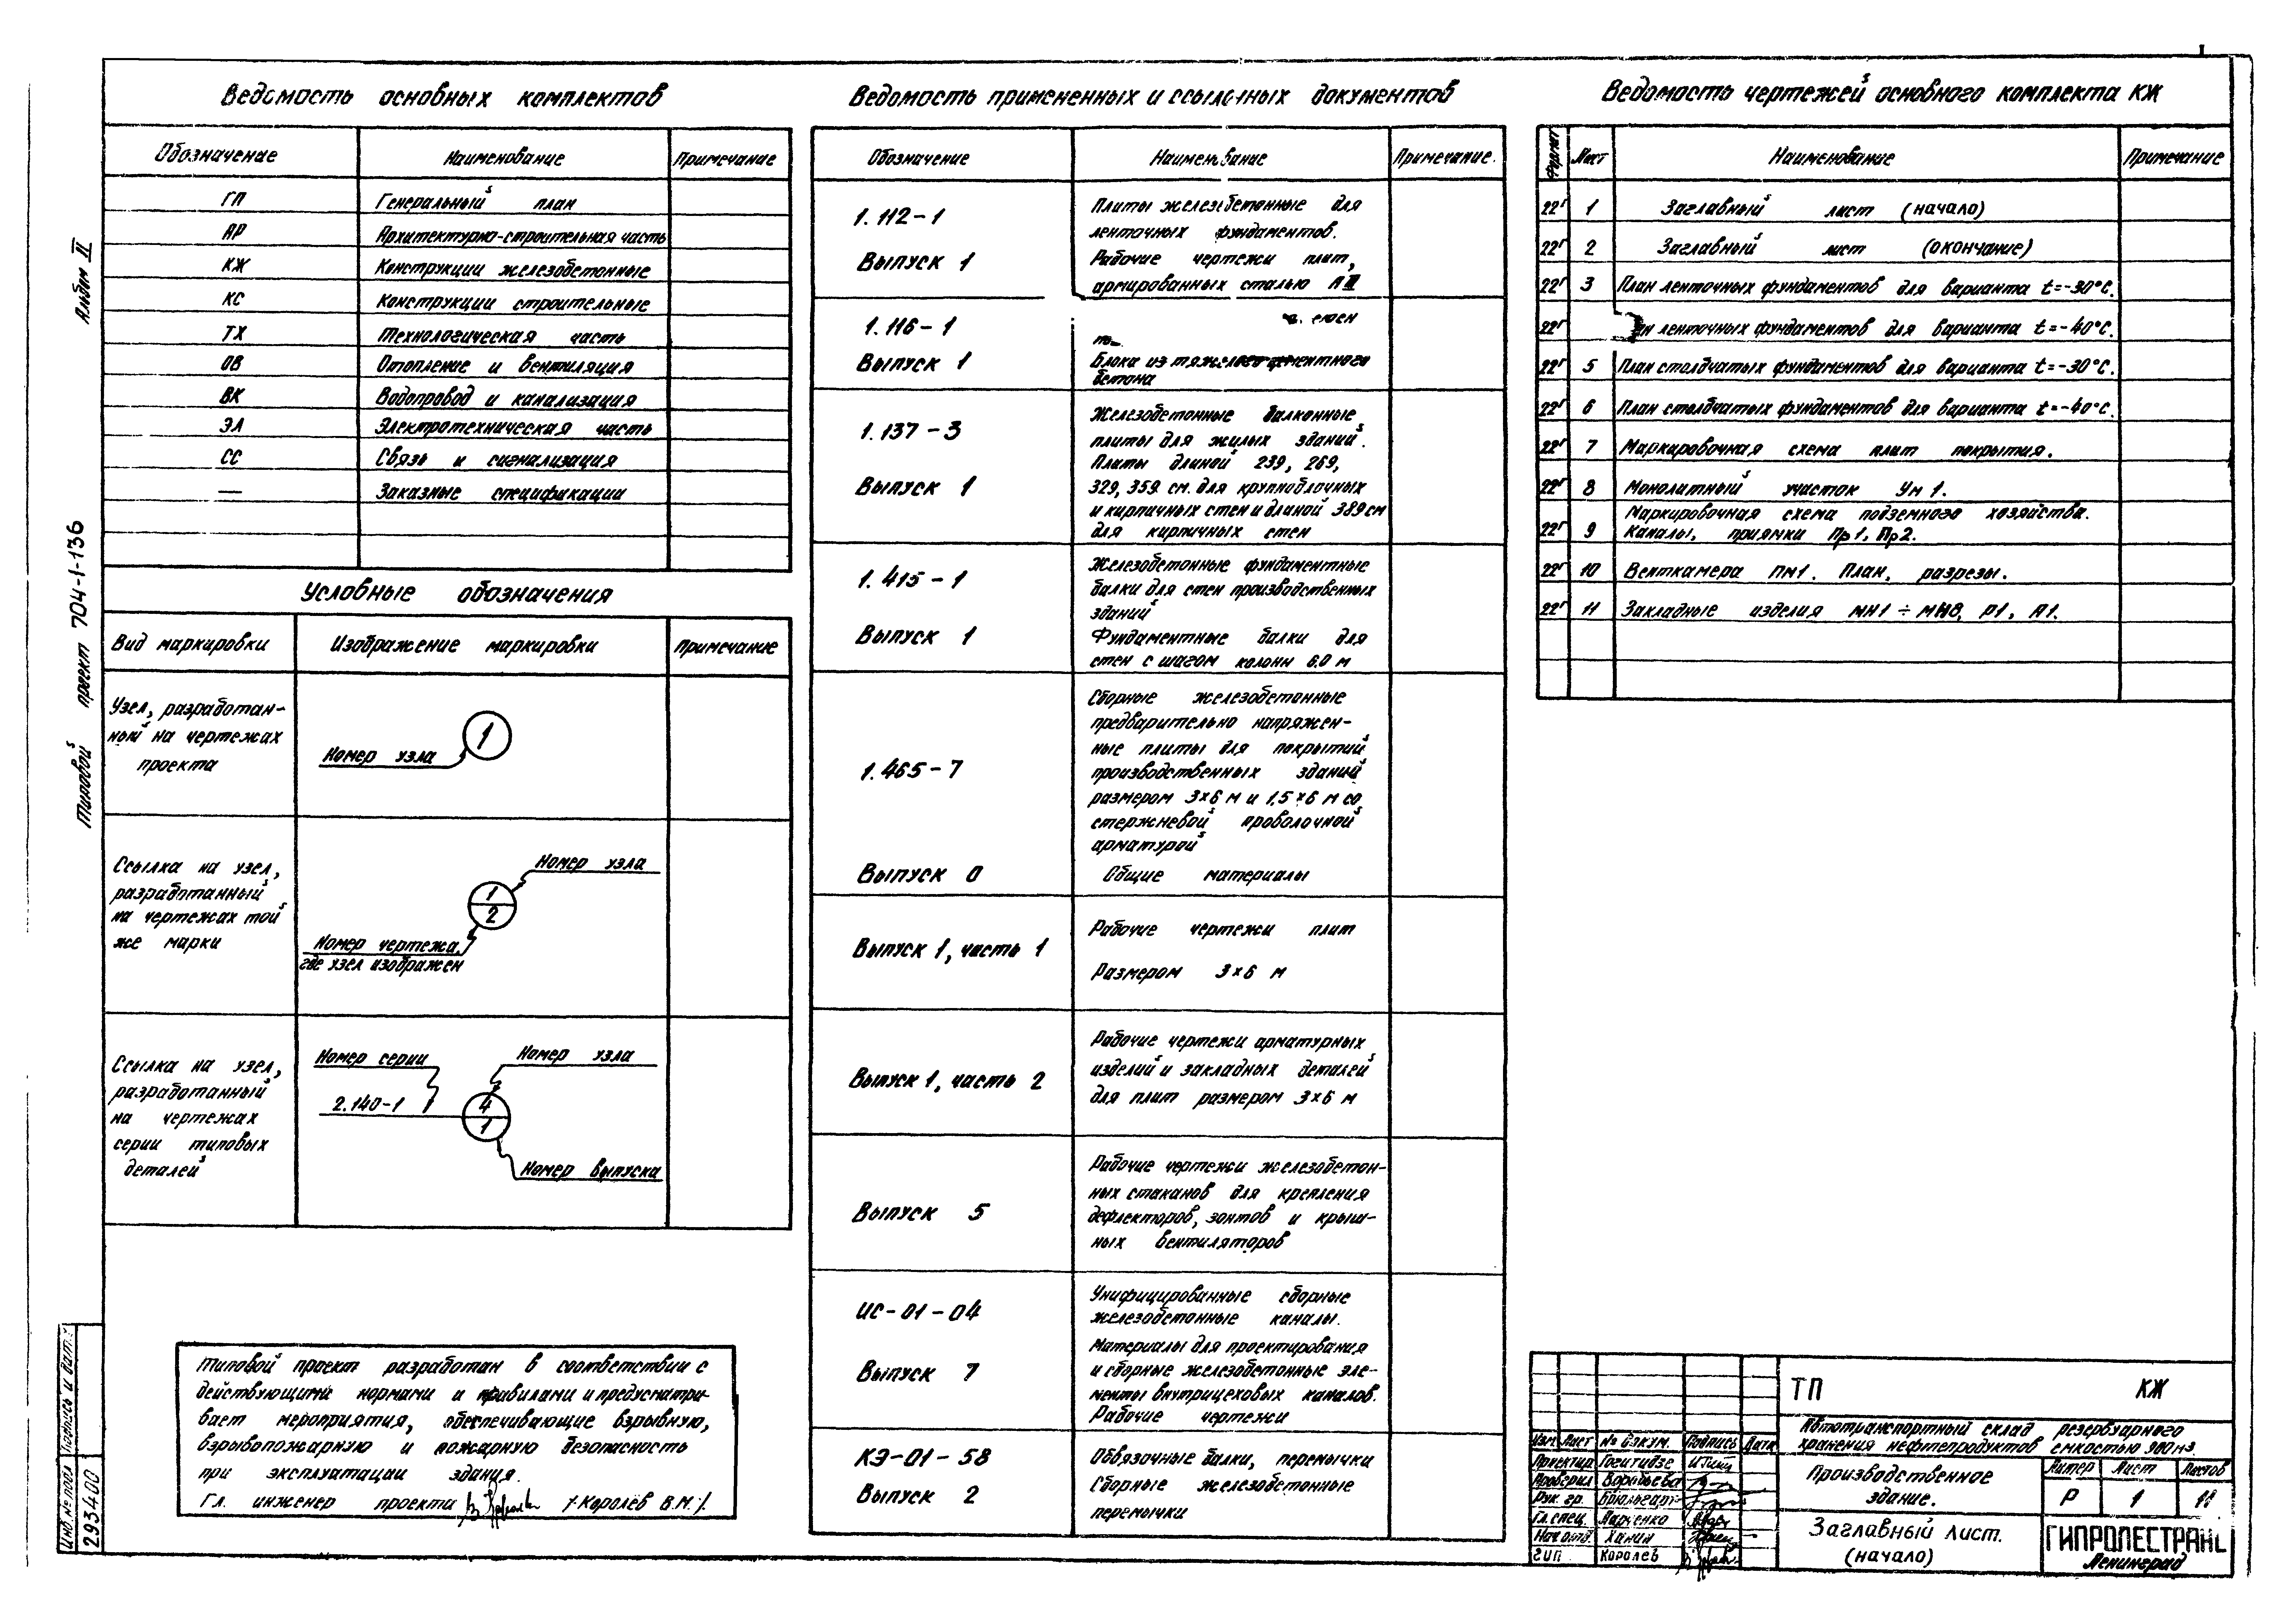 Альбом II
Типовой проект 704-1-136
Ведомость основных комплектов
Обозначение Наименование Примечание
ГП Генеральный план
АР Архитектурно-строительная часть
КЖ Конструкции железобетонные
КС Конструкции строительные
ТХ Технологическая часть
ОВ Отопление и вентиляция
ВК Водопровод и канализация
ЭЛ Электротехническая часть
СС Связь и сигнализация
— Заказные спецификации
Условные обозначения
Вид маркировки Изображение маркировки Примечание
Узел, разработан-
ный на чертежах
проекта
Номер узла
1
Ссылка на узел,
разработанный
на чертежах той
же марки
Номер узла
1
2
Номер чертежа,
где узел изображен
Ссылка на узел,
разработанный
на чертежах
серии типовых
деталей
Номер серии
Номер узла
2.140-1
4
1
Номер выпуска
Типовой проект разработан в соответствии с
действующими нормами и правилами и предусматри-
вает мероприятия, обеспечивающие взрывную,
взрывопожарную и пожарную безопасность
при эксплуатации здания.
Гл. инженер проекта /-Королёв В.М./
Инв. № подл Подпись и дат.
293400
Ведомость примененных и ссылочных документов
Обозначение Наименование Примечание.
1.112-1
Выпуск 1
Плиты железобетонные для
ленточных фундаментов.
Рабочие чертежи плит,
армированных сталью АIII
1.116-1
Выпуск 1
стен
Блоки из тяжелого цементного
бетона
1.137-3
Выпуск 1
Железобетонные балконные
плиты для жилых зданий.
Плиты длиной 239, 269,
329, 359 см. для крупноблочных
и кирпичных стен и длиной 389 см
для кирпичных стен
1.415-1
Выпуск 1
Железобетонные фундаментные
балки для стен производственных
зданий
Фундаментные балки для
стен с шагом колонн 6.0 м
1.465-7
Сборные железобетонные
предварительно напряжен-
ные плиты для покрытий
производственных зданий
размером 3×6 м и 1,5×6 м со
стержневой проволочной
арматурой
Выпуск 0 Общие материалы
Выпуск 1, часть 1
Рабочие чертежи плит
Размером 3×6 м
Выпуск 1, часть 2
Рабочие чертежи арматурных
изделий и закладных деталей
для плит размером 3×6 м
Выпуск 5
Рабочие чертежи железобетон-
ных стаканов для крепления
дефлекторов, зонтов и крыш-
ных вентиляторов
ИС-01-04
Выпуск 7
Унифицированные сборные
железобетонные каналы.
Материалы для проектирования
и сборные железобетонные эле-
менты внутрицеховых каналов.
Рабочие чертежи
КЭ-01-58
Выпуск 2
Обвязочные балки, перемычки
Сборные железобетонные
перемычки
Ведомость чертежей основного комплекта КЖ
Формат Лист Наименование Примечание
22г 1 Заглавный лист (начало)
22г 2 Заглавный лист (окончание)
22г 3 План ленточных фундаментов для варианта t=-30°С.
22г н ленточных фундаментов для варианта t=-40°С.
22г 5 План столбчатых фундаментов для варианта t=-30°С.
22г 6 План столбчатых фундаментов для варианта t=-40°С.
22г 7 Маркировочная схема плит покрытия.
22г 8 Монолитный участок Ум 1.
22г 9 Маркировочная схема подземного хозяйства.
Каналы, приямки Пр1, Пр2.
22г 10 Венткамера ПМ1. План, разрезы.
22г 11 Закладные изделия МН1 ÷ МН8, Р1, Л1.
ТП КЖ
Автотранспортный склад резервуарного
хранения нефтепродуктов емкостью 900 м3.
Изм. Лист № докум. Подпись Дата
Проектир Гогитидзе
Проверил Воробьева
Рук. гр.
Гл. спец. Марченко
Нач. отд. Ханин
ГИП Королев
Производственное
здание.
Литер Лист Листов
Р 1 11
Заглавный лист.
(начало)
ГИПРОЛЕСТРАНС
Ленинград